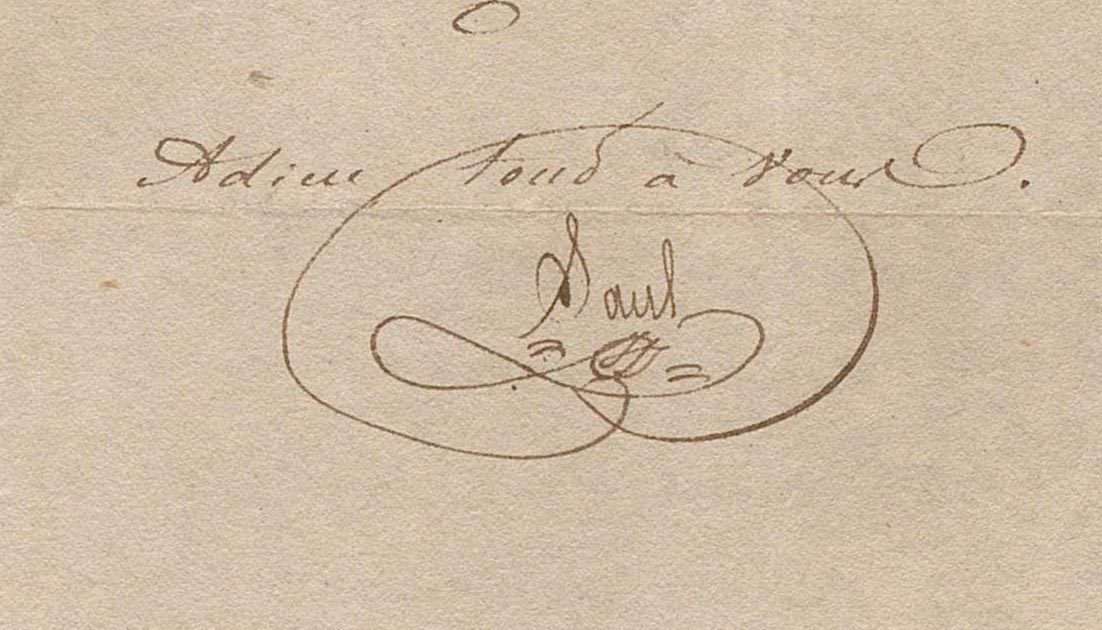 Adieu tout à vous.
Paul